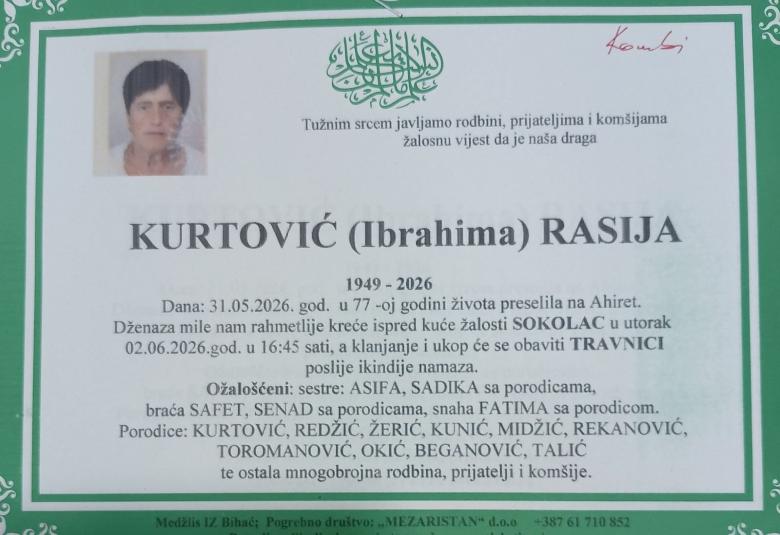 Tužnim srcem javljamo rodbini, prijateljima i komšijama
žalosnu vijest da je naša draga
KURTOVIĆ (Ibrahima) RASIJA
1949 - 2026
Dana: 31.05.2026. god. u 77 -oj godini života preselila na Ahiret.
Dženaza mile nam rahmetlije kreće ispred kuće žalosti SOKOLAC u utorak
02.06.2026.god. u 16:45 sati, a klanjanje i ukop će se obaviti TRAVNICI
poslije ikindije namaza.
Ožalošćeni: sestre: ASIFA, SADIKA sa porodicama,
braća SAFET, SENAD sa porodicama, snaha FATIMA sa porodicom.
Porodice: KURTOVIĆ, REDŽIĆ, ŽERIĆ, KUNIĆ, MIDŽIĆ, REKANOVIĆ,
TOROMANOVIĆ, OKIĆ, BEGANOVIĆ, TALIĆ
te ostala mnogobrojna rodbina, prijatelji i komšije.
Medžlis IZ Bihać; Pogrebno društvo: „MEZARISTAN“ d.o.o +387 61 710 852